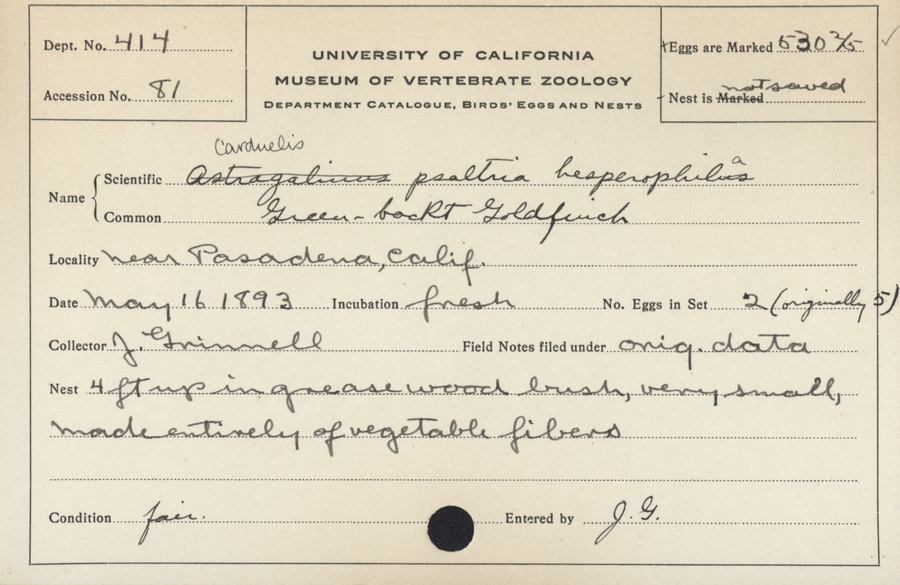 Dept. No. 414
Accession No. 81
UNIVERSITY OF CALIFORNIA
MUSEUM OF VERTEBRATE ZOOLOGY
DEPARTMENT CATALOGUE, BIRDS' EGGS AND NESTS
Eggs are Marked 530 2/5 ✓
not saved
Nest is Marked
Carduelis
Name Scientific Astragalinus psaltria hesperophilus a
Common Green-backt Goldfinch
Locality near Pasadena, Calif.
Date May 16 1893 Incubation fresh No. Eggs in Set 2 (originally 5)
Collector J. Grinnell Field Notes filed under orig. data
Nest 4 ft up in greasewood bush, very small,
made entirely of vegetable fibers
Condition fair. Entered by J. G.